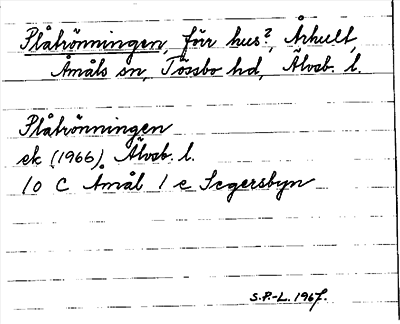 Plåtrönningen, förr hus?, Århult,
Åmåls sn, Tössbo hd, Älvsb. l.
Plåtrönningen
ek (1966), Älvsb. l.
10 C Åmål 1 e Segersbyn
S.P.-L. 1967.